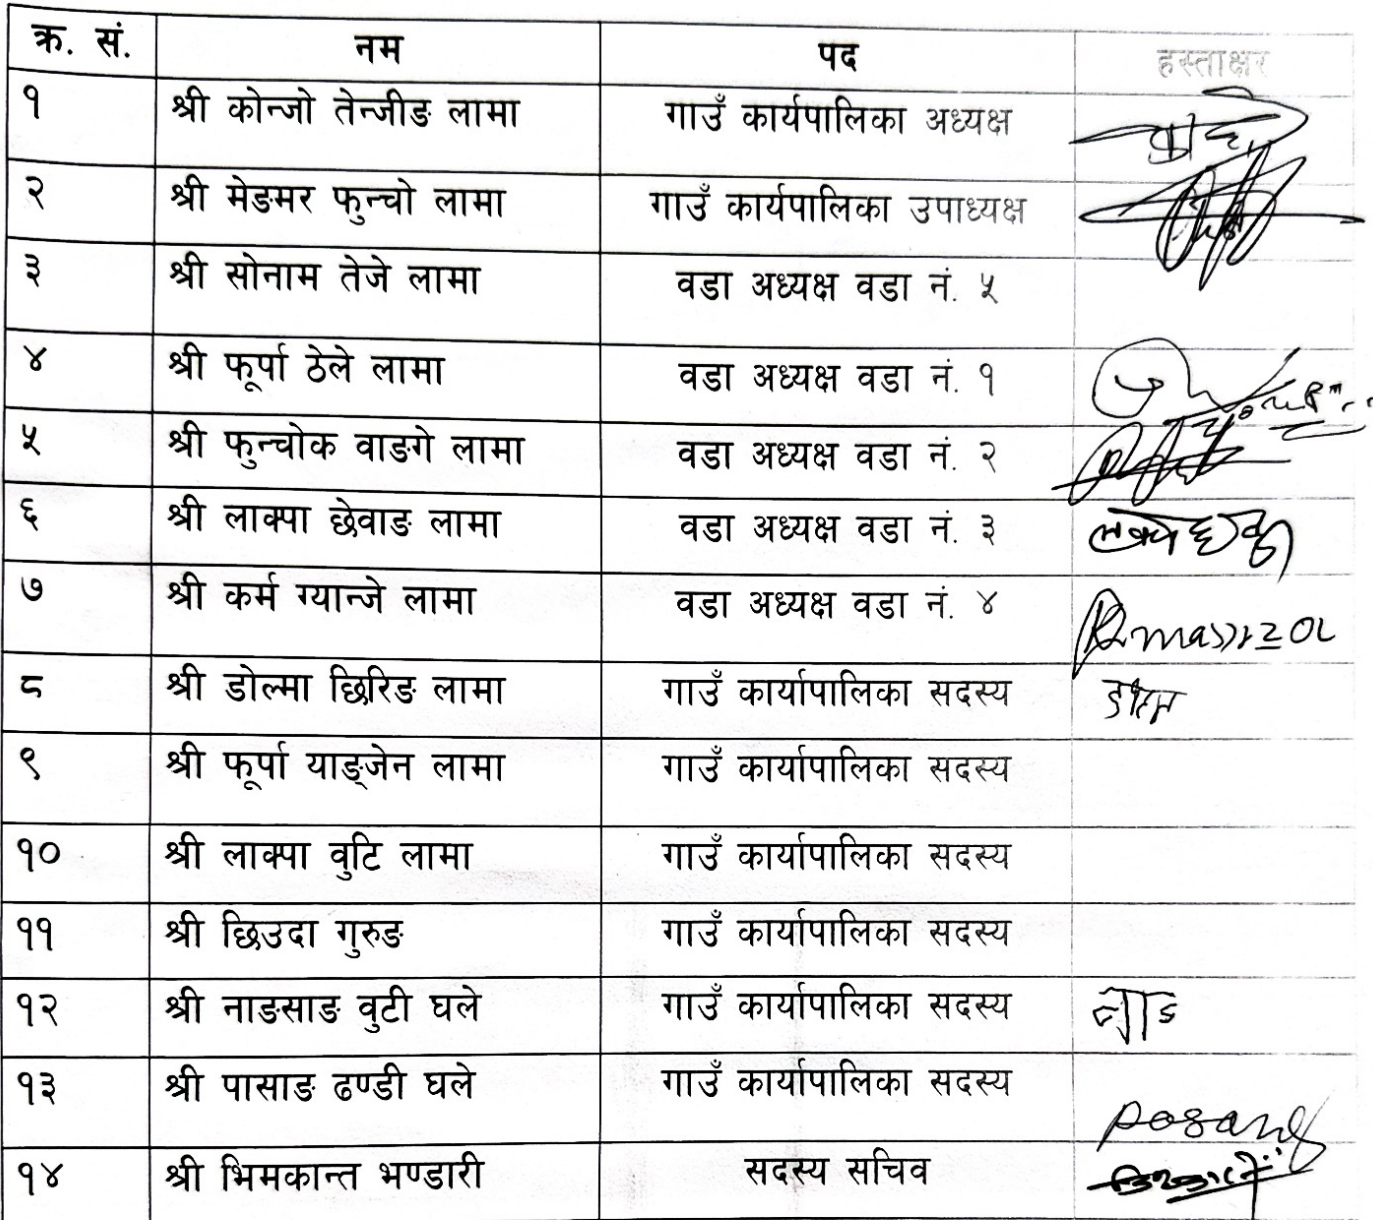 क्र. सं. नम पद हस्ताक्षर
१ श्री कोन्जो तेन्जीङ लामा गाउँ कार्यपालिका अध्यक्ष
२ श्री मेङमर फुन्चो लामा गाउँ कार्यपालिका उपाध्यक्ष
३ श्री सोनाम तेजे लामा वडा अध्यक्ष वडा नं. ५
४ श्री फूर्पा ठेले लामा वडा अध्यक्ष वडा नं. १
५ श्री फुन्चोक वाङगे लामा वडा अध्यक्ष वडा नं. २
६ श्री लाक्पा छेवाङ लामा वडा अध्यक्ष वडा नं. ३
७ श्री कर्म ग्यान्जे लामा वडा अध्यक्ष वडा नं. ४
८ श्री डोल्मा छिरिङ लामा गाउँ कार्यापालिका सदस्य
९ श्री फूर्पा याङ्जेन लामा गाउँ कार्यापालिका सदस्य
१० श्री लाक्पा वुटि लामा गाउँ कार्यापालिका सदस्य
११ श्री छिउदा गुरुङ गाउँ कार्यापालिका सदस्य
१२ श्री नाङसाङ वुटी घले गाउँ कार्यापालिका सदस्य
१३ श्री पासाङ ढण्डी घले गाउँ कार्यापालिका सदस्य
Pasang
१४ श्री भिमकान्त भण्डारी सदस्य सचिव